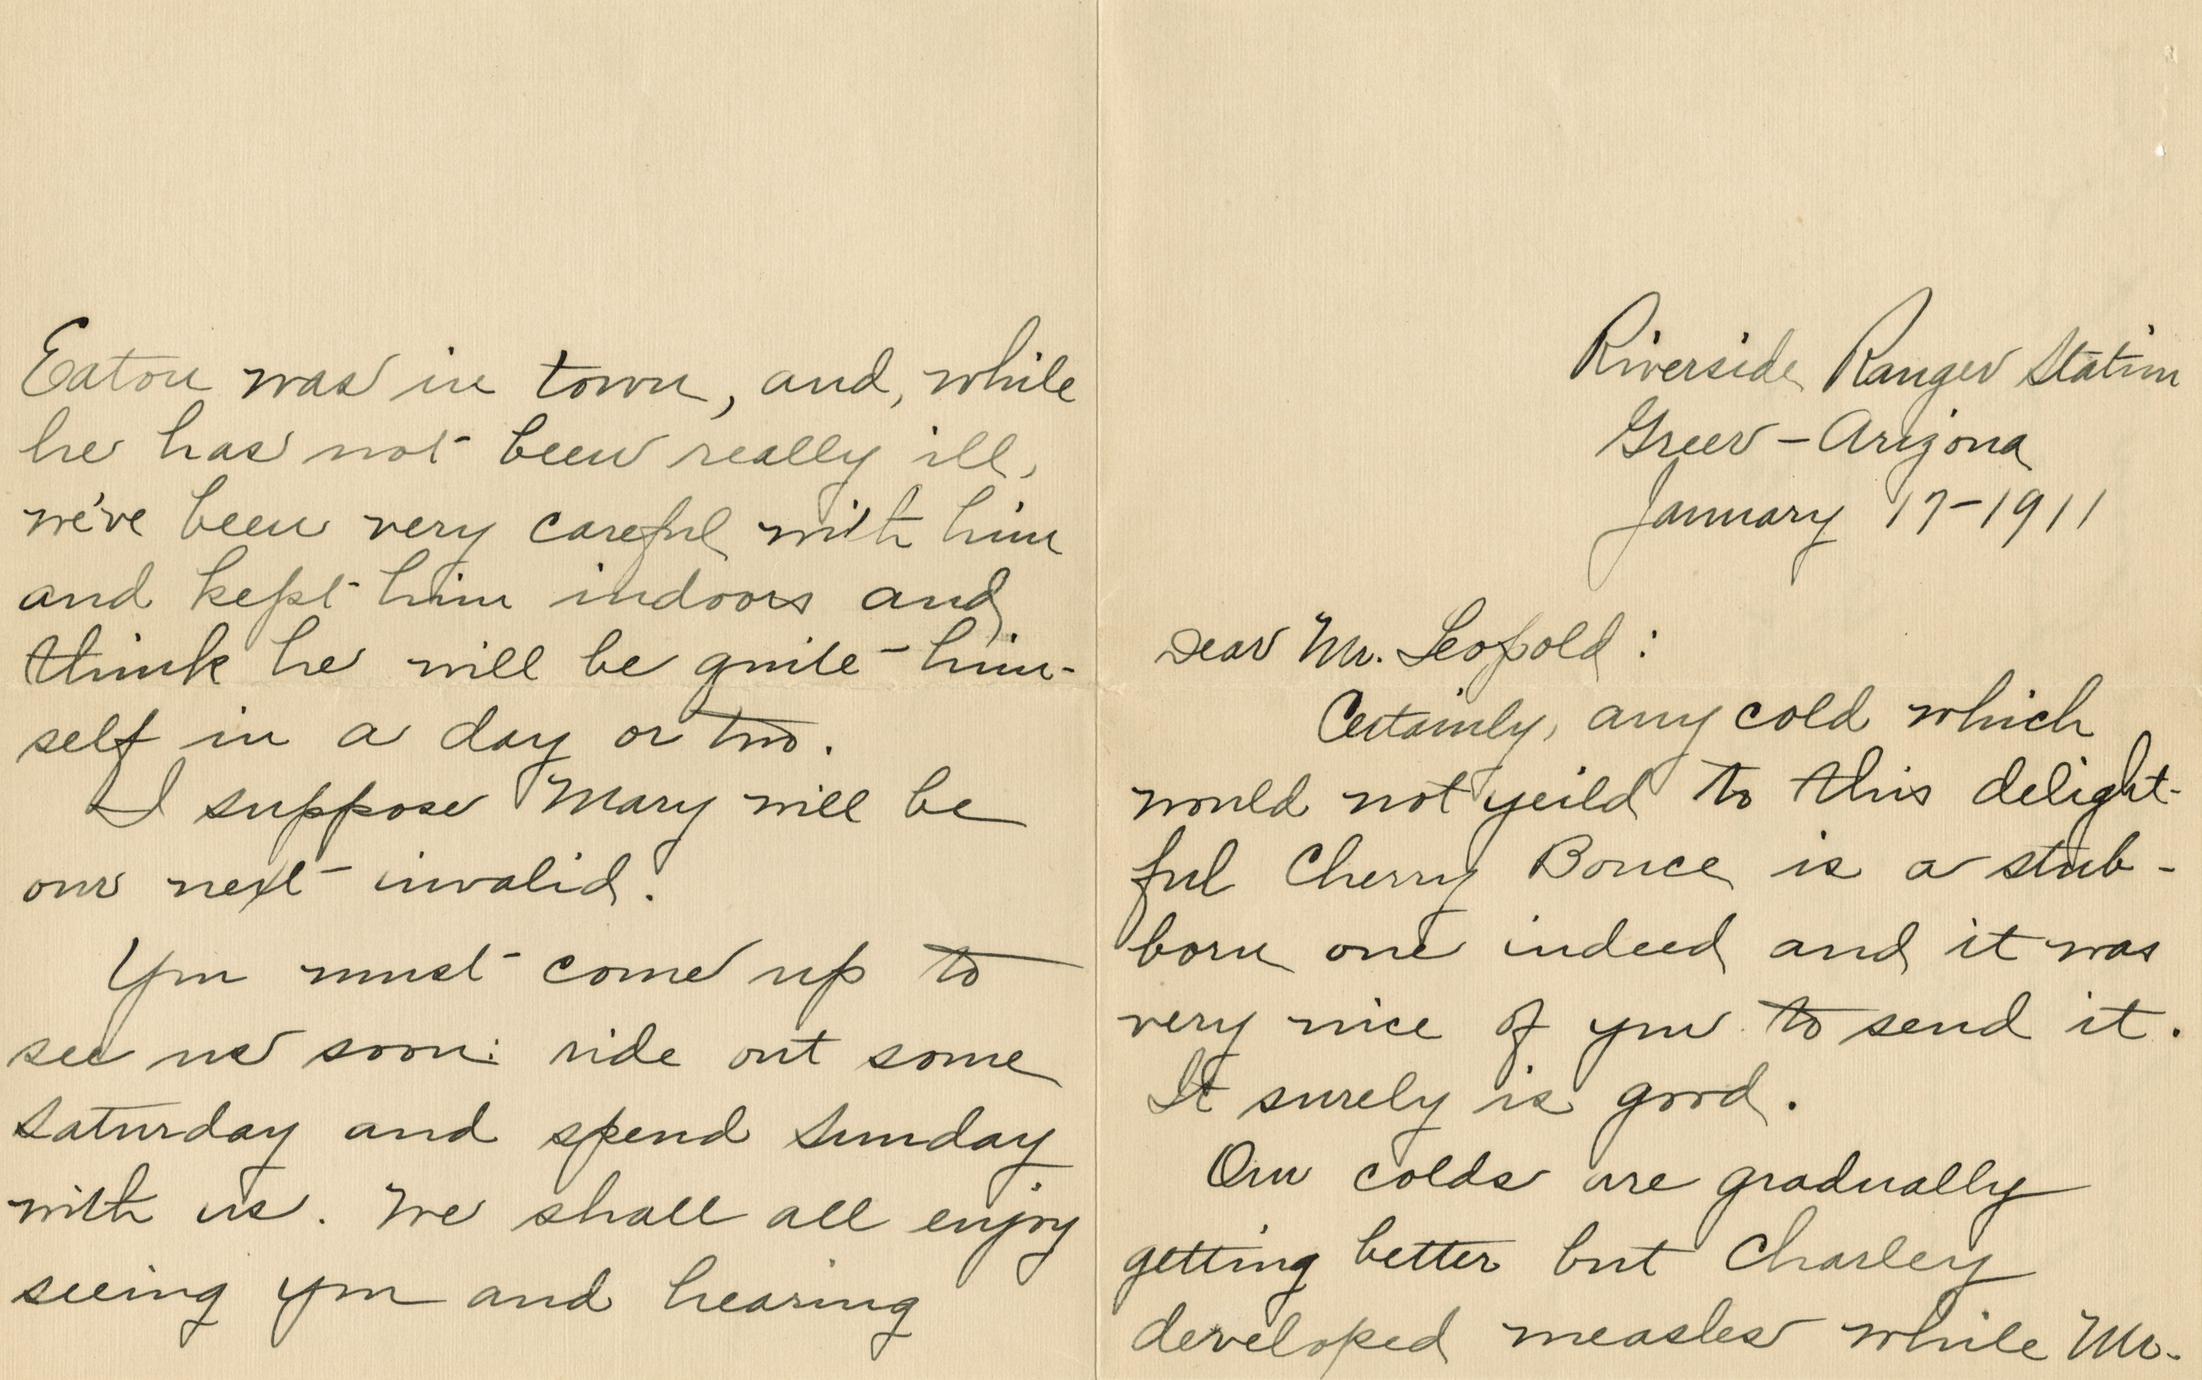 Riverside Ranger Station
Greer – Arizona
January 17–1911
Dear Mr. Leopold:
Certainly, any cold which
would not yeild to this delight-
ful Cherry Bonce is a stub-
born one indeed and it was
very nice of you to send it.
It surely is good.
Our colds are gradually
getting better but Charley
developed measles while Mr.
Eaton was in town, and, while
he has not been really ill,
we've been very careful with him
and kept him indoors and
think he will be quite him-
self in a day or two.
I suppose Mary will be
our next invalid.
You must come up to
see us soon: ride out some
Saturday and spend Sunday
with us. We shall all enjoy
seeing you and hearing